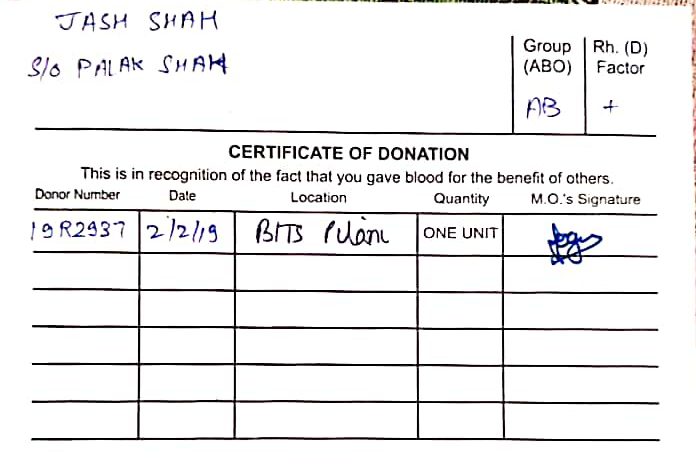 JASH SHAH
S/o PALAK SHAH
Group (ABO)
Rh. (D) Factor
AB
+
CERTIFICATE OF DONATION
This is in recognition of the fact that you gave blood for the benefit of others.
Donor Number Date Location Quantity M.O.'s Signature
19R2937 2/2/19 BITS Pilani ONE UNIT